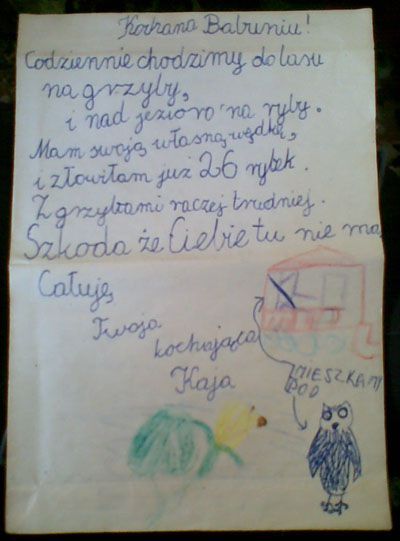 Kochana Babuniu!
Codziennie chodzimy do lasu
na grzyby,
i nad jezioro na ryby.
Mam swoją własną wędkę,
i złowiłam już 26 rybek.
Z grzybami raczej trudniej.
Szkoda że Ciebie tu nie ma
Całuję
Twoja
kochająca
Kaja
MIESZKAMY
POD